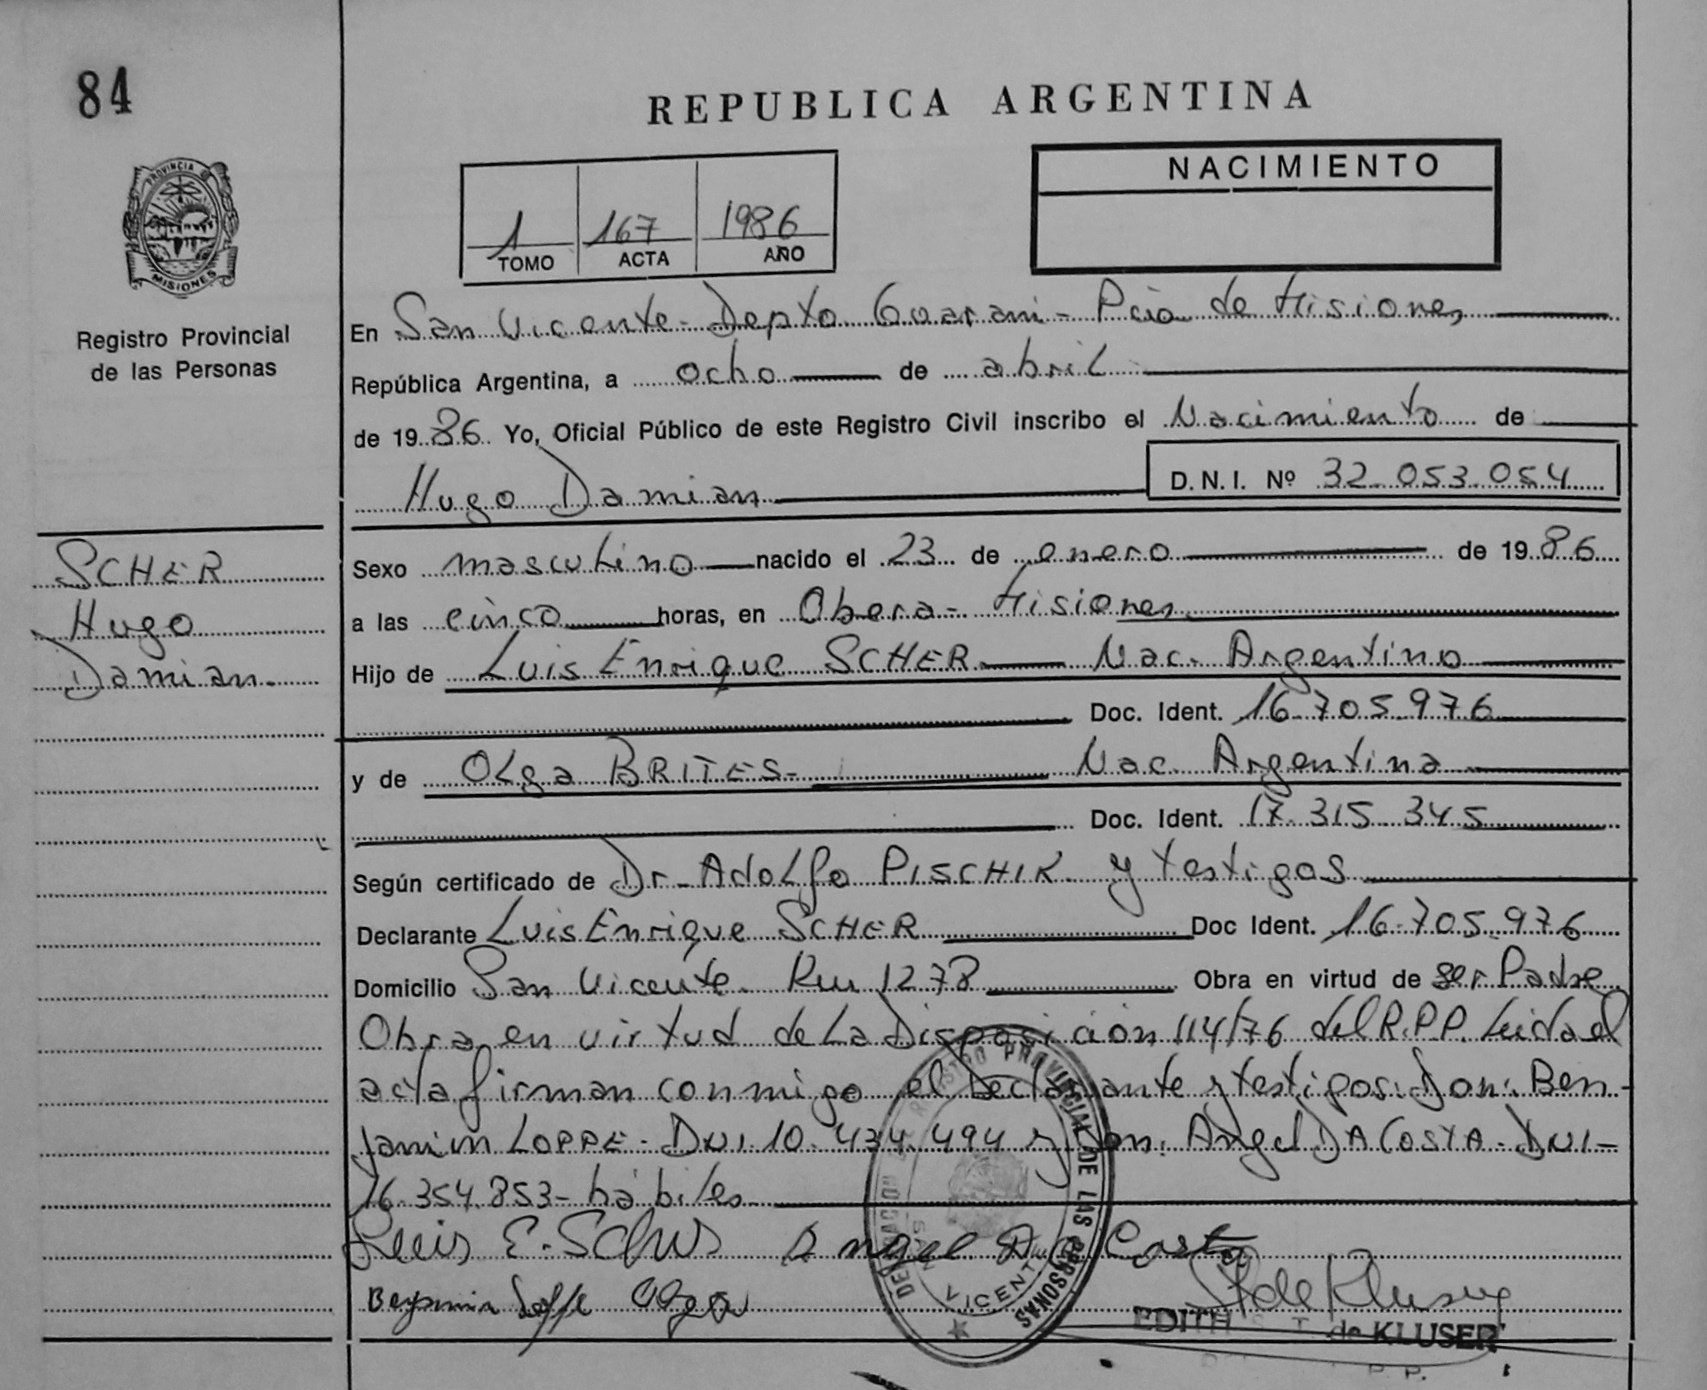 84
REPUBLICA ARGENTINA
PROVINCIA D
MISIONES
Registro Provincial
de las Personas
1 167 1986
TOMO ACTA AÑO
NACIMIENTO
En San Vicente - Depto Guarani - Pcia de Misiones
República Argentina, a ocho de abril
de 1986 Yo, Oficial Público de este Registro Civil inscribo el Nacimiento de
Hugo Damian D.N.I. Nº 32.053.054
SCHER
Hugo
Damian.
Sexo masculino nacido el 23 de enero de 1986
a las cinco horas, en Obera - Misiones
Hijo de Luis Enrique SCHER Nac. Argentino
Doc. Ident. 16.705.976
y de Olga BRITES - Nac. Argentina
Doc. Ident. 17.315.345
Según certificado de Dr. Adolfo PISCHIK y testigos
Declarante Luis Enrique SCHER Doc Ident. 16.705.976
Domicilio San Vicente. Km 1278 Obra en virtud de ser Padre
Obra en virtud de la Disposición 114/76 del R.P.P. Leida el
acta firman conmigo el Declarante y testigos: Don: Ben-
jamin LOPPE - DNI. 10.434.494 y Don: Angel DA COSTA - DNI -
16.354.853 - hábiles
Luis E. Scher Angel Da Costa
Benjamin Loppe Olga
DELEGACION REGISTRO PROVINCIAL DE LAS PERSONAS
VICENTE
EDITH T. de KLUSER
P. P.